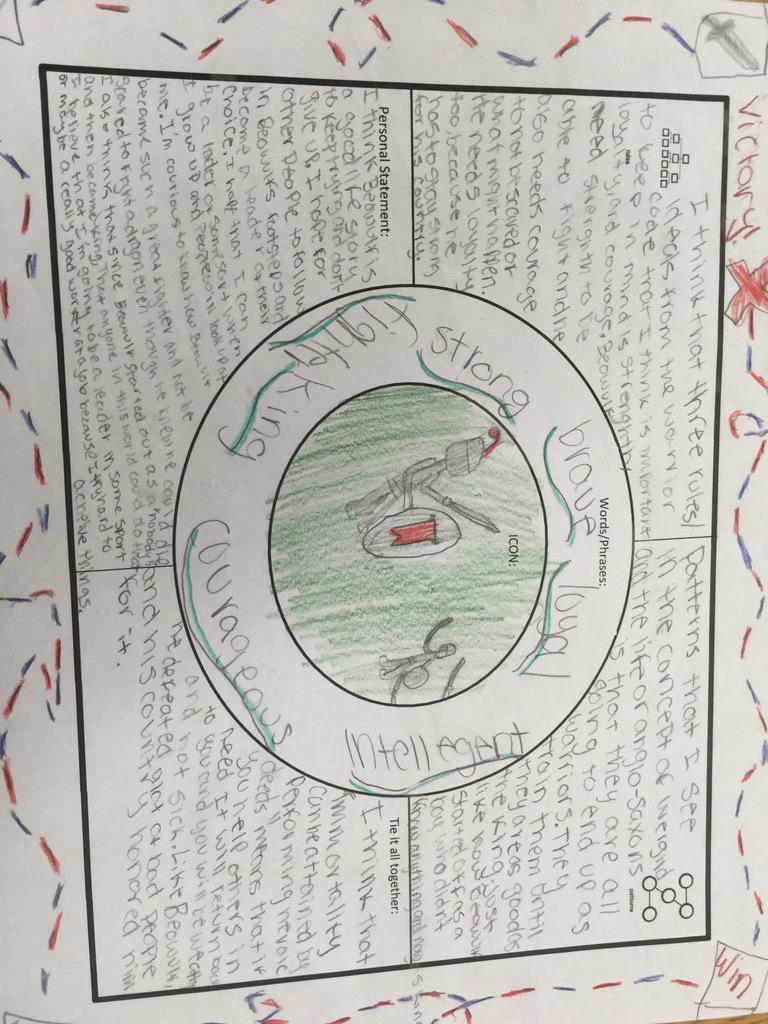 Victory!
Win
rules
I think that three rules/
ideas from the warrior
code that I think is important
to keep in mind is strength,
loyalty, and courage. Beowulf
need strength to be
able to fight and he
also needs courage
to not be scared of
what might happen.
He needs loyalty
too because he
has to stay strong
for his country.
patterns
Patterns that I see
in the concept of weigrd
and the life of anglo-saxons
is that they are all
going to end up as
warriors. They
train them until
they are as good as
the king. Just
like how Beowulf
started off as a
boy who didn't
know anything and now is king
Words/Phrases:
fighting
strong
brave
loyal
intellegent
courageous
king
ICON:
Personal Statement:
I think Beowulf is
a good life story
to keep trying and don't
give up. I hope for
other people to follow
in Beowulfs footsteps and
become a leader of their
choice. I hope that I can
be a leader of some sort when
I grow up and people will look up at
me. I'm curious to know how Beowulf
became such a great fighter and not be
scared to fight a dragon even though he knew he could die.
I also think that since Beowulf started out as a nobody
and then became king, that anyone in this world could do that
I believe that I'm going to be a leader in some sport
or maybe a really good worker at a job because I try hard to
achieve things.
Tie it all together:
I think that
immortality
can be attained by
performing heroic
deeds means that if
you help others in
need it will return back
to you and you will be wealthy
and not sick. Like Beowulf,
he defeated a lot of bad people
and his country honored him
for it.